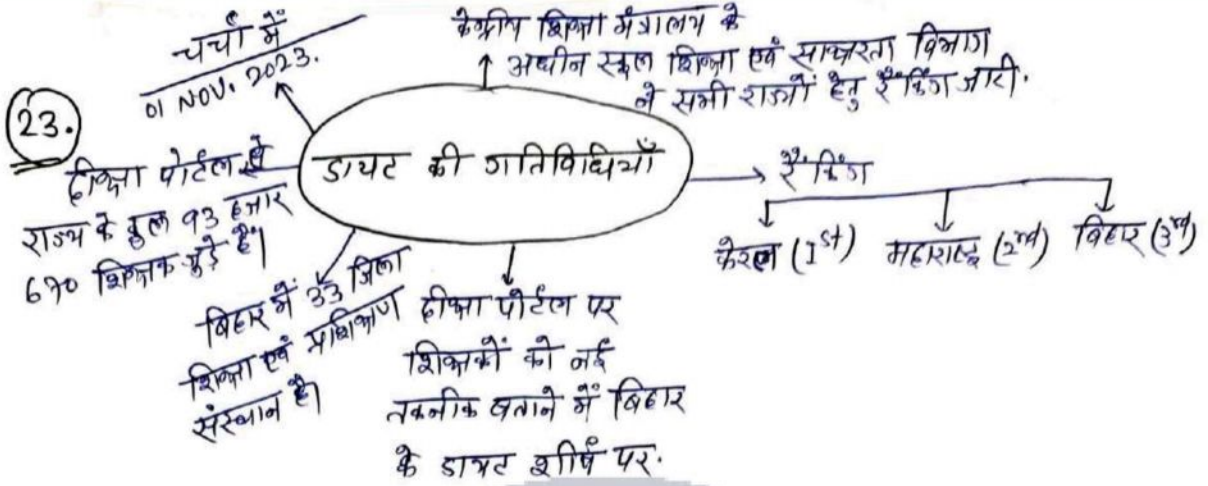 चर्चा में
01 NOV. 2023.
केन्द्रीय शिक्षा मंत्रालय के
अधीन स्कूल शिक्षा एवं साक्षरता विभाग
ने सभी राज्यों हेतु रैंकिंग जारी.
23.
डायट की गतिविधियाँ
रैंकिंग
केरल (1st) महाराष्ट्र (2nd) बिहार (3rd)
दीक्षा पोर्टल से
राज्य के कुल 93 हजार
670 शिक्षक जुड़े हैं।
बिहार में 33 जिला
शिक्षा एवं प्रशिक्षण
संस्थान है।
दीक्षा पोर्टल पर
शिक्षकों को नई
तकनीक बताने में बिहार
के डायट शीर्ष पर.